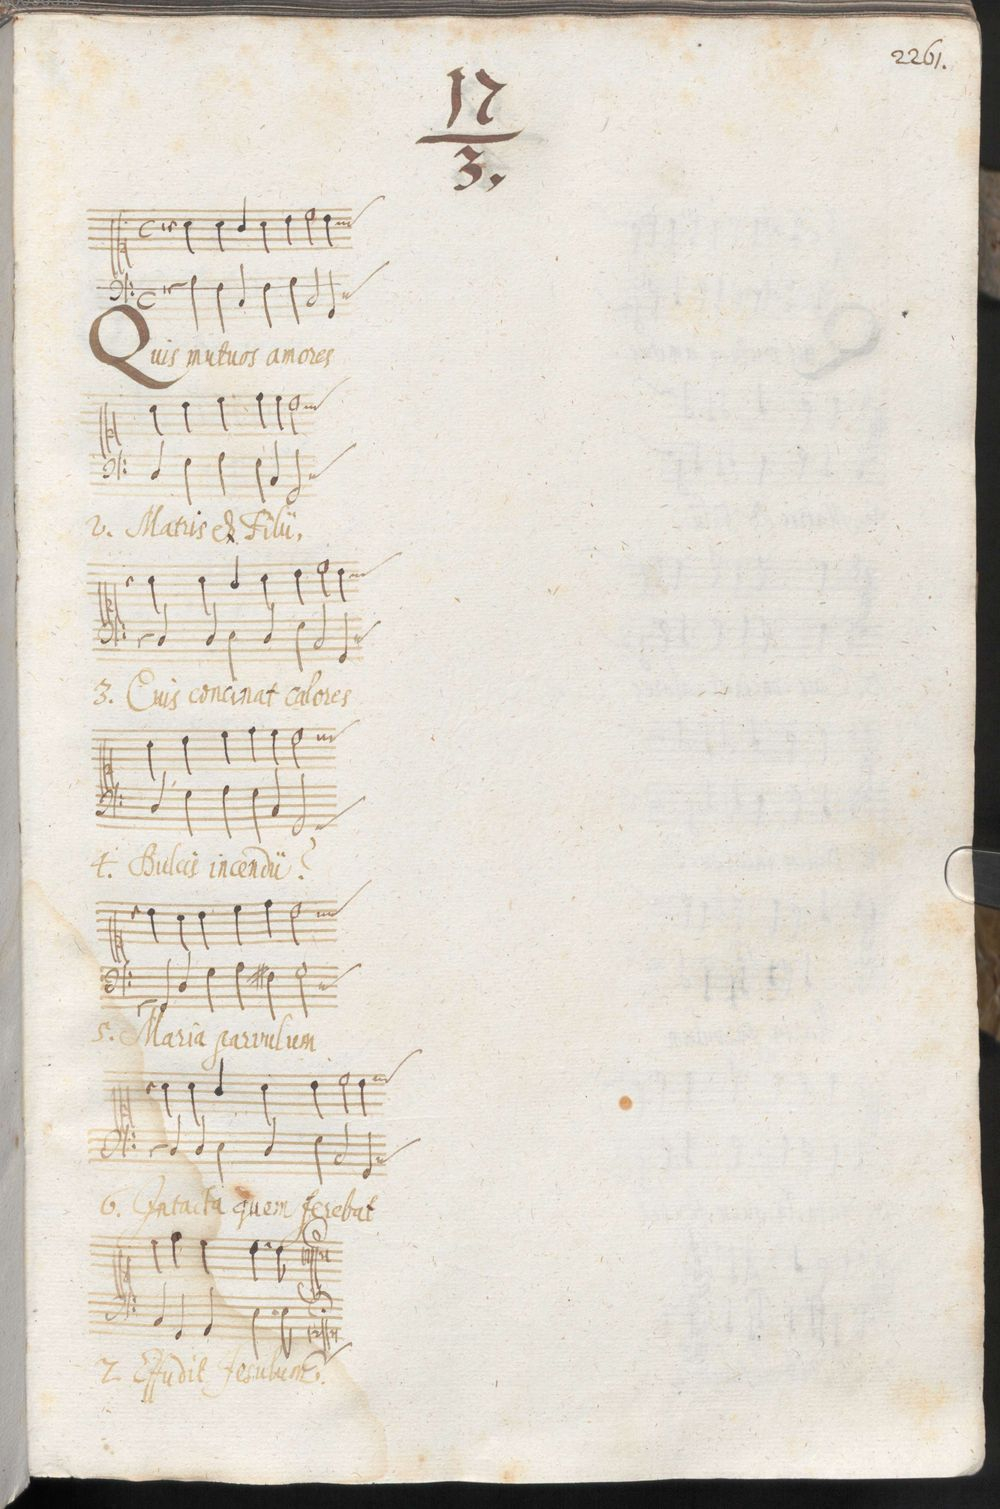 2261.
17
3.
Quis mutuos amores
2. Matris & Filii,
3. Cuis concinat calores
4. Dulcis incendii?
5. Maria parvulum
6. Intacta quem ferebat
7 Effudit Jesulum.